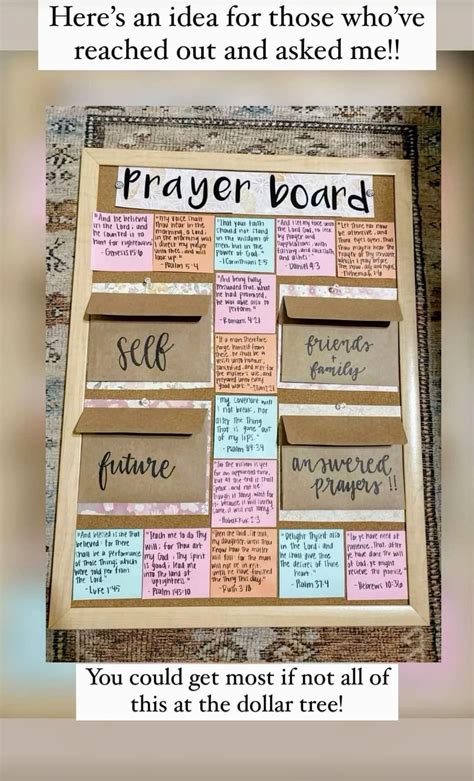 Here's an idea for those who've
reached out and asked me!!
Prayer board
"And he believed
in the Lord; and
he counted it to
him for righteousness
- Genesis 15:6
"My voice shalt
thou hear in the
morning, O Lord;
in the morning will
I direct my prayer
unto thee, and will
look up."
- Psalm 5:4
"That your faith
should not stand
in the wisdom of
men, but in the
power of God."
- 1 Corinthians 2:5
"And I set my face unto
the Lord God, to seek
by prayer and
supplications, with
fasting, and sackcloth,
and ashes:"
- Daniel 9:3
"Let thine ear now
be attentive, and
thine eyes open, that
thou mayest hear the
prayer of thy servant
which I pray before
thee now, day and night
- Nehemiah 1:6
"And being fully
persuaded that what
he had promised,
he was able also to
perform."
- Romans 4:21
self
friends
+
family
"If a man therefore
purge himself from
these, he shall be a
vessel unto honour,
sanctified, and meet for
the master's use, and
prepared unto every
good work."
"My covenant will
I not break, nor
alter the thing
that is gone out
of my lips."
- Psalm 89:34
future
answered
prayers!!
"For the vision is yet
for an appointed time,
but at the end it shall
speak, and not lie:
though it tarry, wait for
it; because it will
surely come
- Habakkuk 2:3
"And blessed is she that
believed: for there
shall be a performance
of those things which
were told her from
the Lord."
- Luke 1:45
"Teach me to do thy
will; for thou art
my God: thy spirit
is good; lead me
into the land of
uprightness."
- Psalm 143:10
- Ruth 3:18
"Delight thyself also
in the Lord; and
he shall give thee
the desires of thine
heart."
- Psalm 37:4
"For ye have need of
patience, that, after
ye have done the will
of God, ye might
receive the promise."
- Hebrews 10:36
You could get most if not all of
this at the dollar tree!